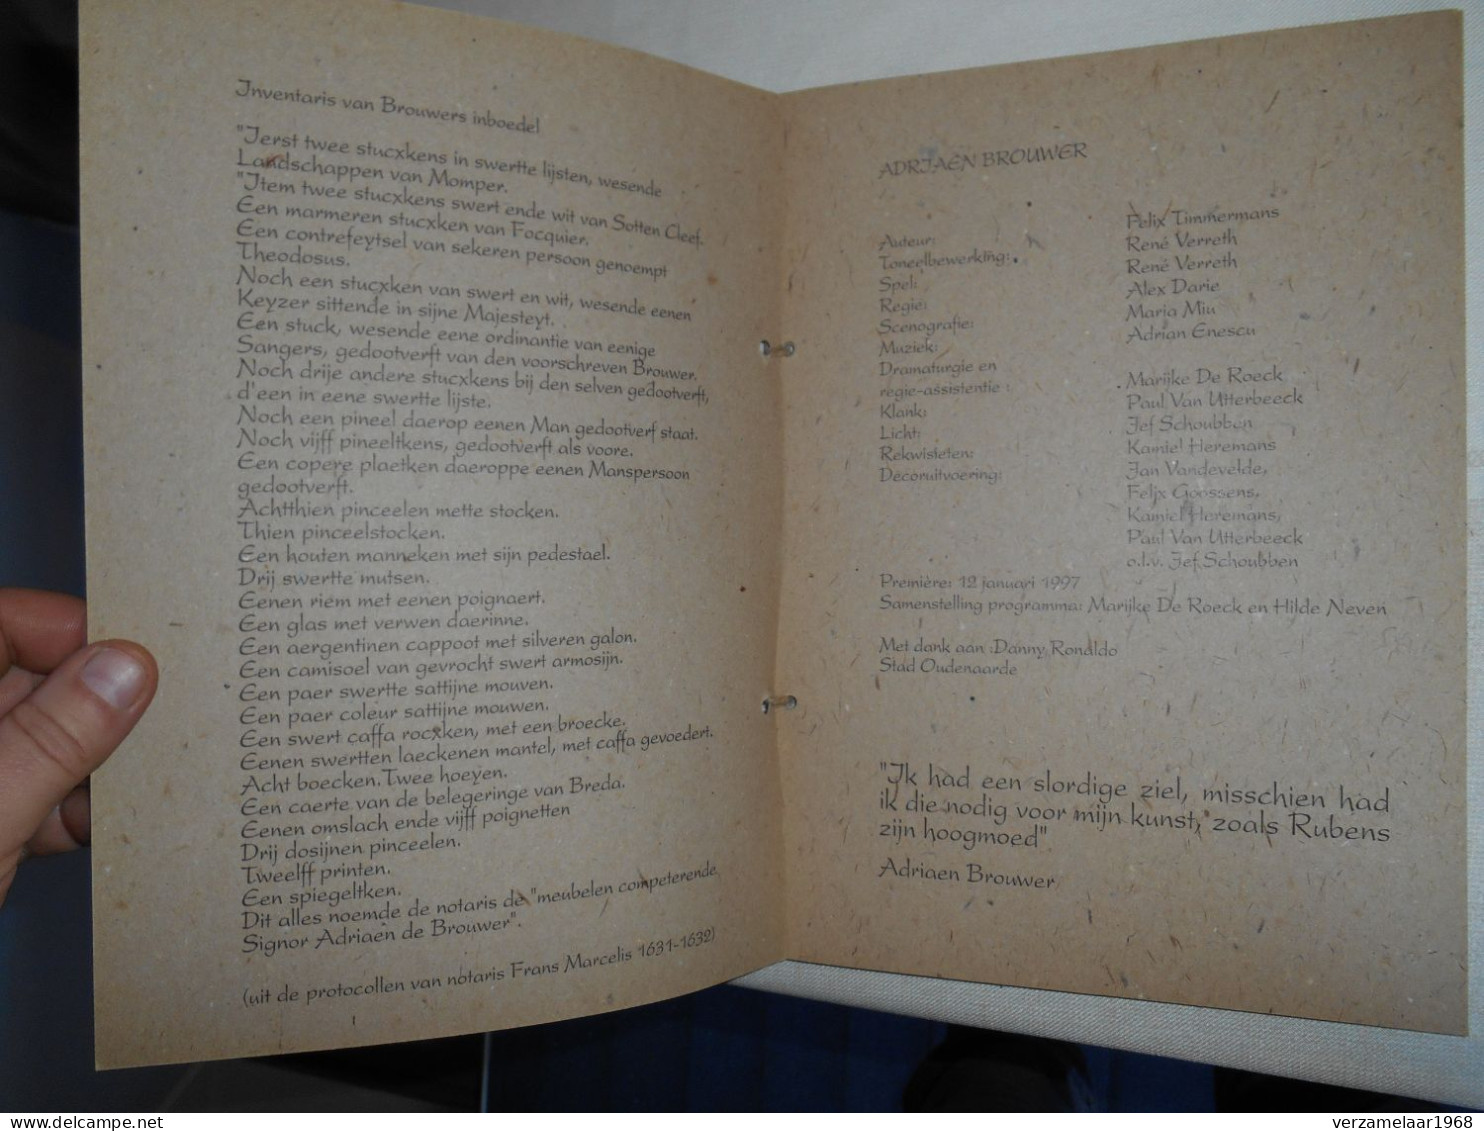 Inventaris van Brouwers inboedel
"Ierst twee stucxkens in swertte lijsten, wesende
Landschappen van Momper.
"Item twee stucxkens swert ende wit van Sotten Cleef.
Een marmeren stucxken van Focquier.
Een contrefeytsel van sekeren persoon genoempt
Theodosus.
Noch een stucxken van swert en wit, wesende eenen
Keyzer sittende in sijne Majesteyt.
Een stuck, wesende eene ordinantie van eenige
Sangers, gedootverft van den voorschreven Brouwer.
Noch drije andere stucxkens bij den selven gedootverft,
d'een in eene swertte lijste.
Noch een pineel daerop eenen Man gedootverf staat.
Noch vijff pineeltkens, gedootverft als voore.
Een copere plaetken daeroppe eenen Manspersoon
gedootverft.
Achtthien pinceelen mette stocken.
Thien pinceelstocken.
Een houten manneken met sijn pedestael.
Drij swertte mutsen.
Eenen riem met eenen poignaert.
Een glas met verwen daerinne.
Een aergentinen cappoot met silveren galon.
Een camisoel van gevrocht swert armosijn.
Een paer swertte sattijne mouven.
Een paer coleur sattijne mouwen.
Een swert caffa rocxken, met een broecke.
Eenen swertten laeckenen mantel, met caffa gevoedert.
Acht boecken.Twee hoeyen.
Een caerte van de belegeringe van Breda.
Eenen omslach ende vijff poignetten
Drij dosijnen pinceelen.
Tweelff printen.
Een spiegeltken.
Dit alles noemde de notaris de "meubelen competerende
Signor Adriaen de Brouwer".
(uit de protocollen van notaris Frans Marcelis 1631-1632)
ADRIAEN BROUWER
Auteur: Felix Timmermans
Toneelbewerking: René Verreth
Spel: René Verreth
Regie: Alex Darie
Scenografie: Maria Miu
Muziek: Adrian Enescu
Dramaturgie en
regie-assistentie : Marijke De Roeck
Klank: Paul Van Utterbeeck
Licht: Jef Schoubben
Rekwisieten: Kamiel Heremans
Decoruitvoering: Jan Vandevelde,
Felix Goossens,
Kamiel Heremans,
Paul Van Utterbeeck
o.l.v. Jef Schoubben
Première: 12 januari 1997
Samenstelling programma: Marijke De Roeck en Hilde Neven
Met dank aan :Danny Ronaldo
Stad Oudenaarde
"Ik had een slordige ziel, misschien had
ik die nodig voor mijn kunst, zoals Rubens
zijn hoogmoed"
Adriaen Brouwer
delcampe.net
verzamelaar1968